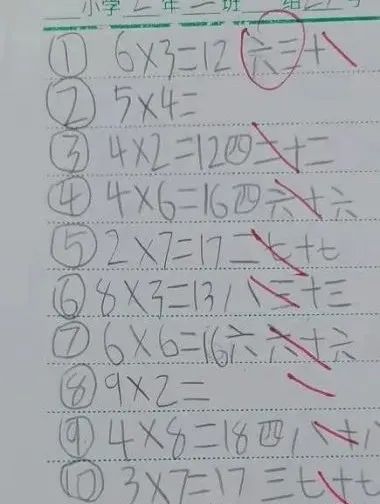 小学2年二班
① 6×3=12 六三十
② 5×4=
③ 4×2=12四二十二
④ 4×6=16四六十六
⑤ 2×7=17二七十七
⑥ 8×3=13八三十三
⑦ 6×6=16六六十六
⑧ 9×2=
⑨ 4×8=18四八十八
⑩ 3×7=17三七十七